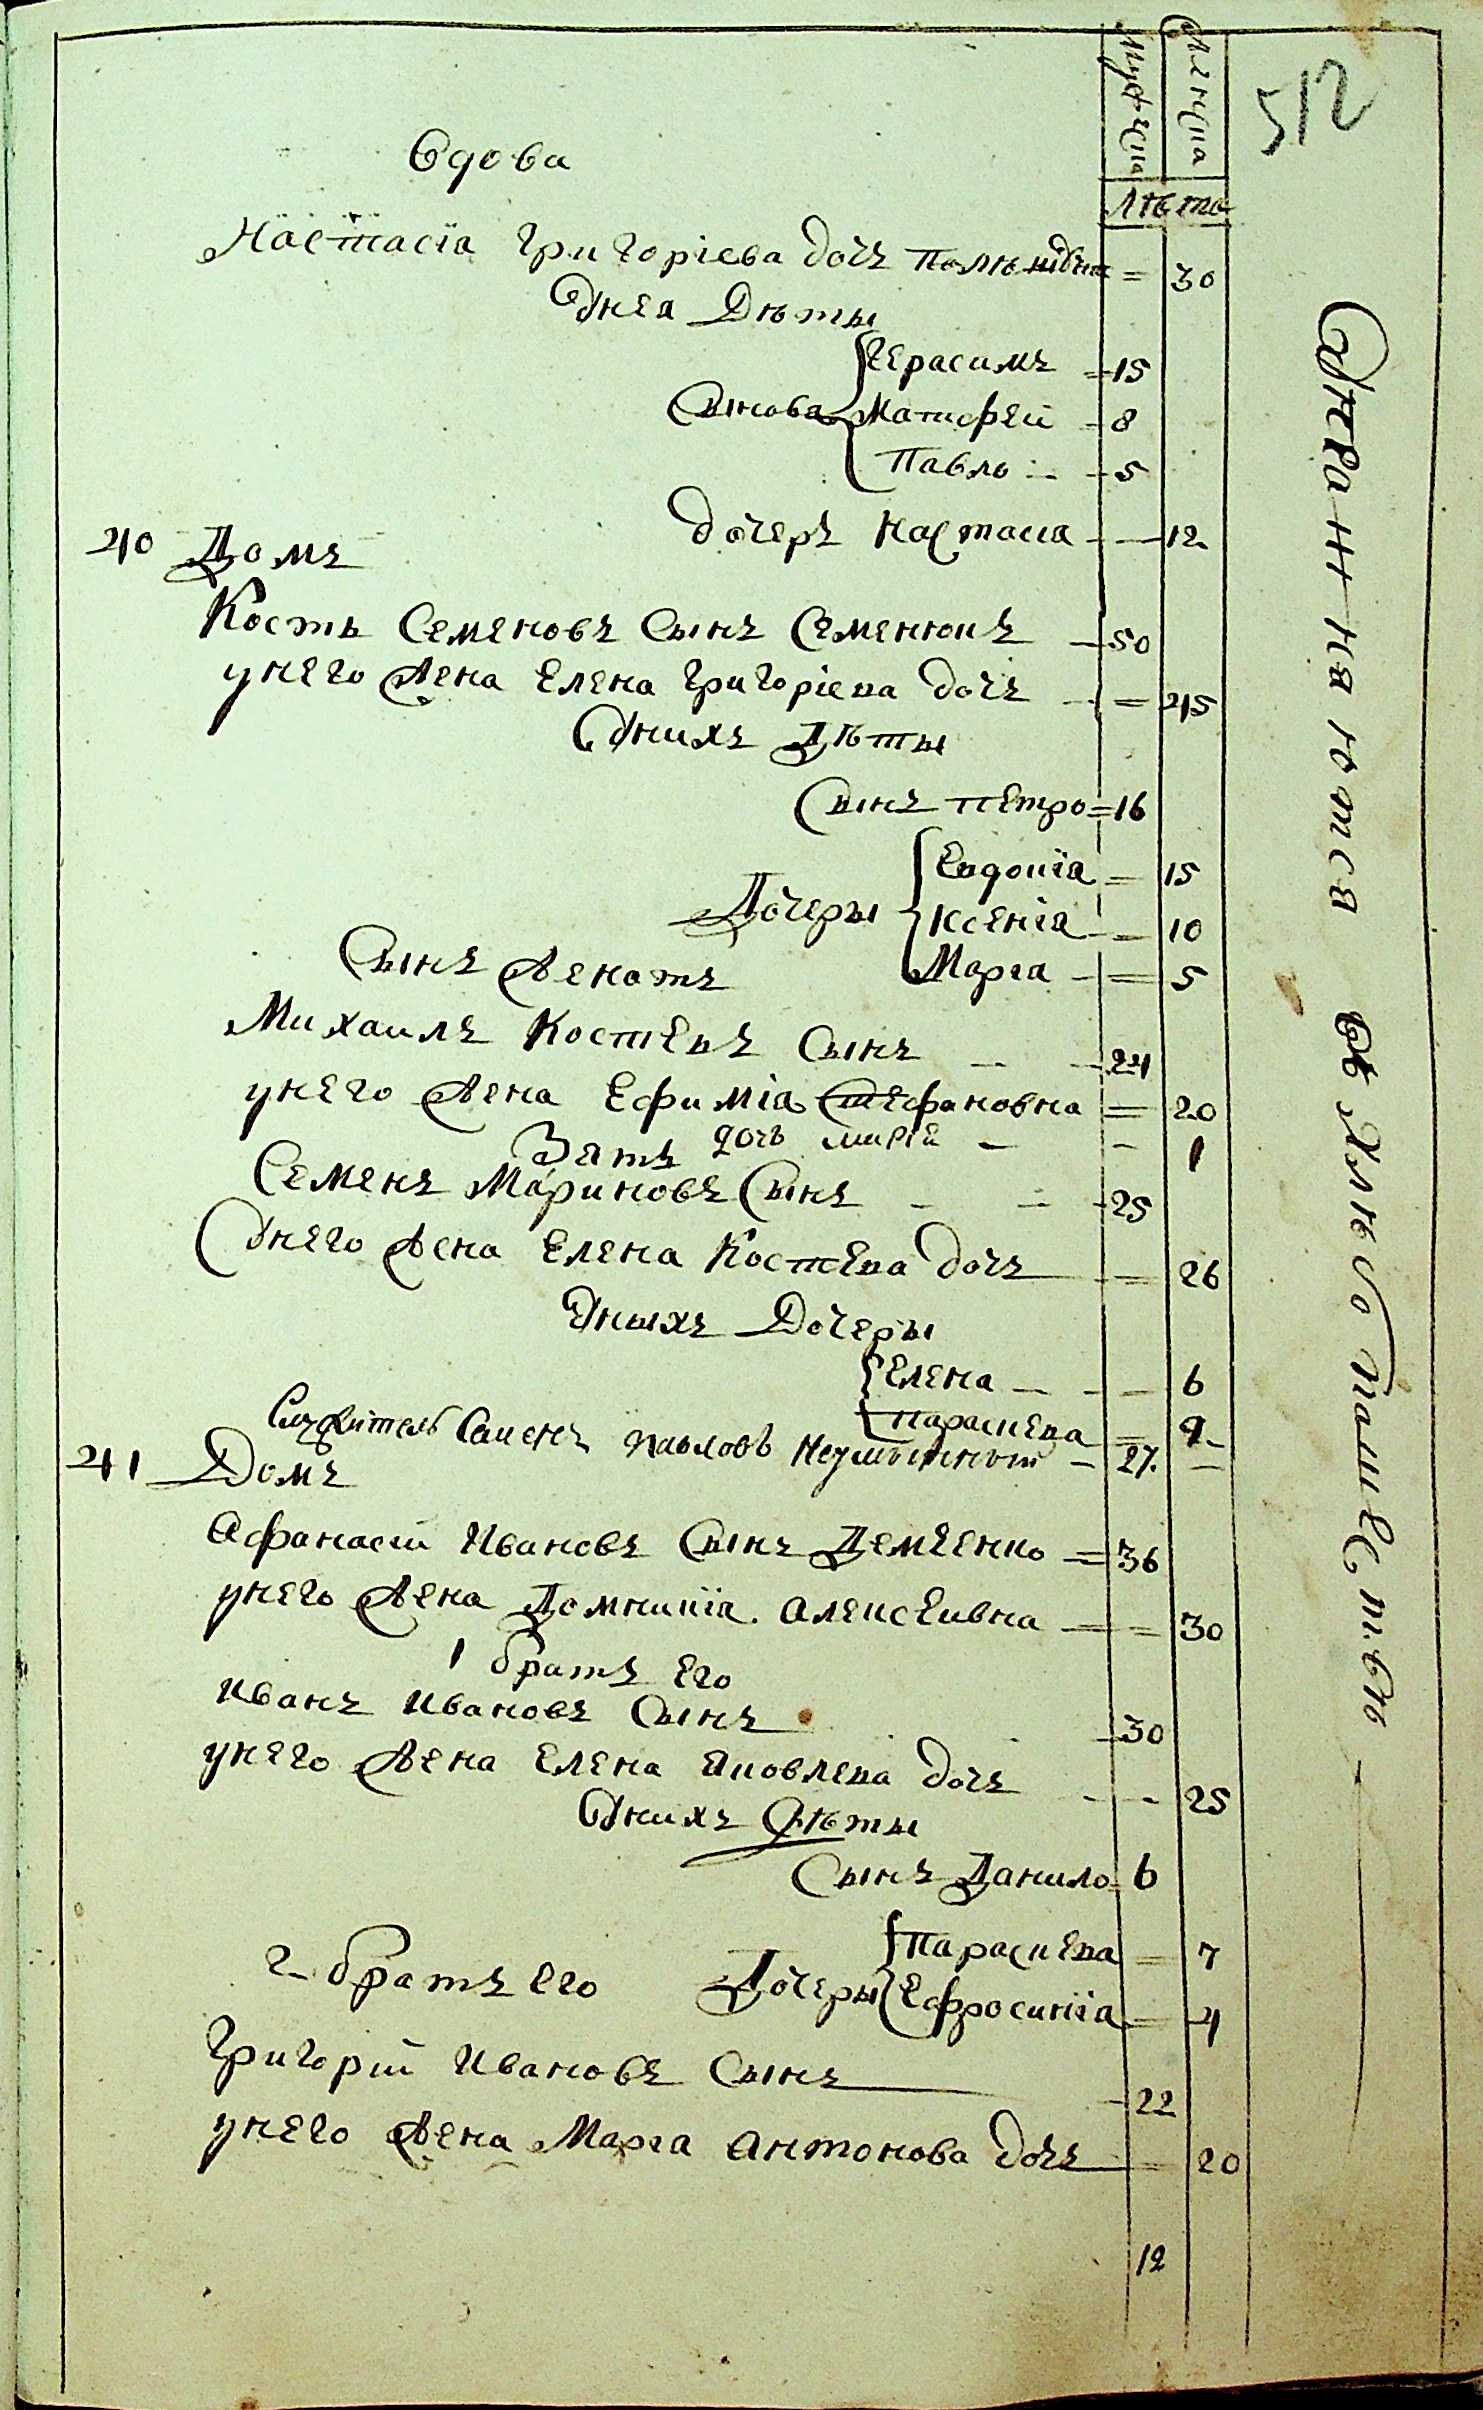 Мужеска
Женска
512
Лѣта
Вдова
Настасіа Григоріева дочъ = 30
Унея Дѣты
Герасимъ = 15
Сынова Матфей - 8
Павло - - 5
дочеръ Настасіа - - 12
40 Домъ
Кость Семеновъ Сынъ Семенюкъ - 50
унего Жена Елена Григоріева дочъ - = 45
Унихъ Дѣты
Сынъ Петро = 16
Евдокіа = 15
Дочеры Ксеніа - = 10
Марѳа - = 5
Сынъ Женатъ
Михаилъ Костѣвъ Сынъ - - 24
унего Жена Ефиміа Стефановна = 20
дочь Маріа - - 1
Зять
Семенъ Мариновъ Сынъ - - - 25
Унего Жена Елена Костѣва дочъ = 26
Уныхъ Дочеры
Елена - - - 6
Параскева = 2
Служитель Семенъ Павловъ - 27. -
41 Домъ
Афанасій Ивановъ Сынъ Демченко = 36
унего Жена Домникіа Алексѣивна = = 30
1 братъ Его
Иванъ Ивановъ Сынъ - 30
унего Жена Елена Яковлева дочъ - - 25
Унихъ Дѣты
Сынъ Данило = 6
Параскева = 7
Дочеры Ефросиніа = 4
2 братъ Его
Григорій Ивановъ Сынъ - 22
унего Жена Марѳа Антонова дочъ = 20
12